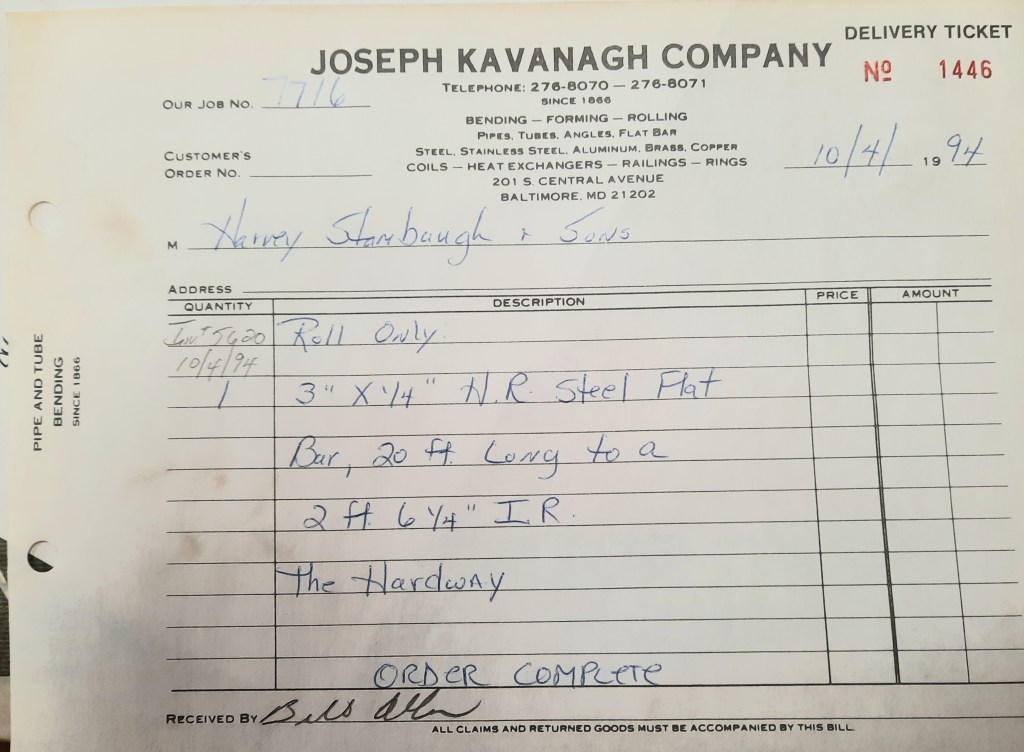 DELIVERY TICKET
JOSEPH KAVANAGH COMPANY
Nº 1446
TELEPHONE: 276-8070 — 276-8071
SINCE 1866
OUR JOB NO. 7716
BENDING — FORMING — ROLLING
PIPES, TUBES, ANGLES, FLAT BAR
STEEL, STAINLESS STEEL, ALUMINUM, BRASS, COPPER
COILS — HEAT EXCHANGERS — RAILINGS — RINGS
201 S. CENTRAL AVENUE
BALTIMORE, MD 21202
CUSTOMER'S
ORDER NO.
10/4/ 19 94
M Harvey Stambaugh & Sons
ADDRESS
QUANTITY DESCRIPTION PRICE AMOUNT
Inv# 5620 Roll Only.
10/4/94
1 3" X 1/4" H.R. Steel Flat
Bar, 20 ft. Long to a
2 ft. 6 1/4" I.R.
The Hardway
ORDER COMPLETE
RECEIVED BY Bill
ALL CLAIMS AND RETURNED GOODS MUST BE ACCOMPANIED BY THIS BILL
PIPE AND TUBE
BENDING
SINCE 1866